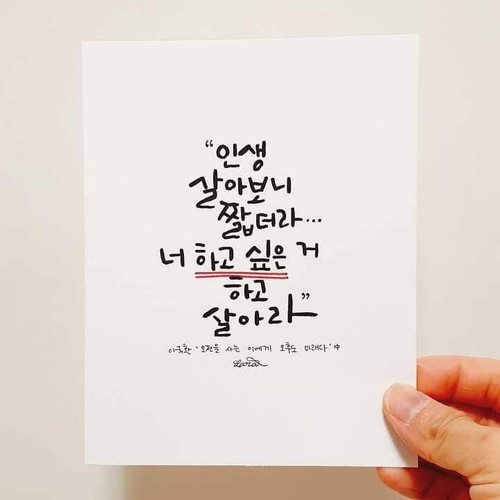 “인생
살아보니
짧더라...
너 하고 싶은 거
하고
살아라”
이국환 '오전을 사는 이에게 오후도 미래다' 中